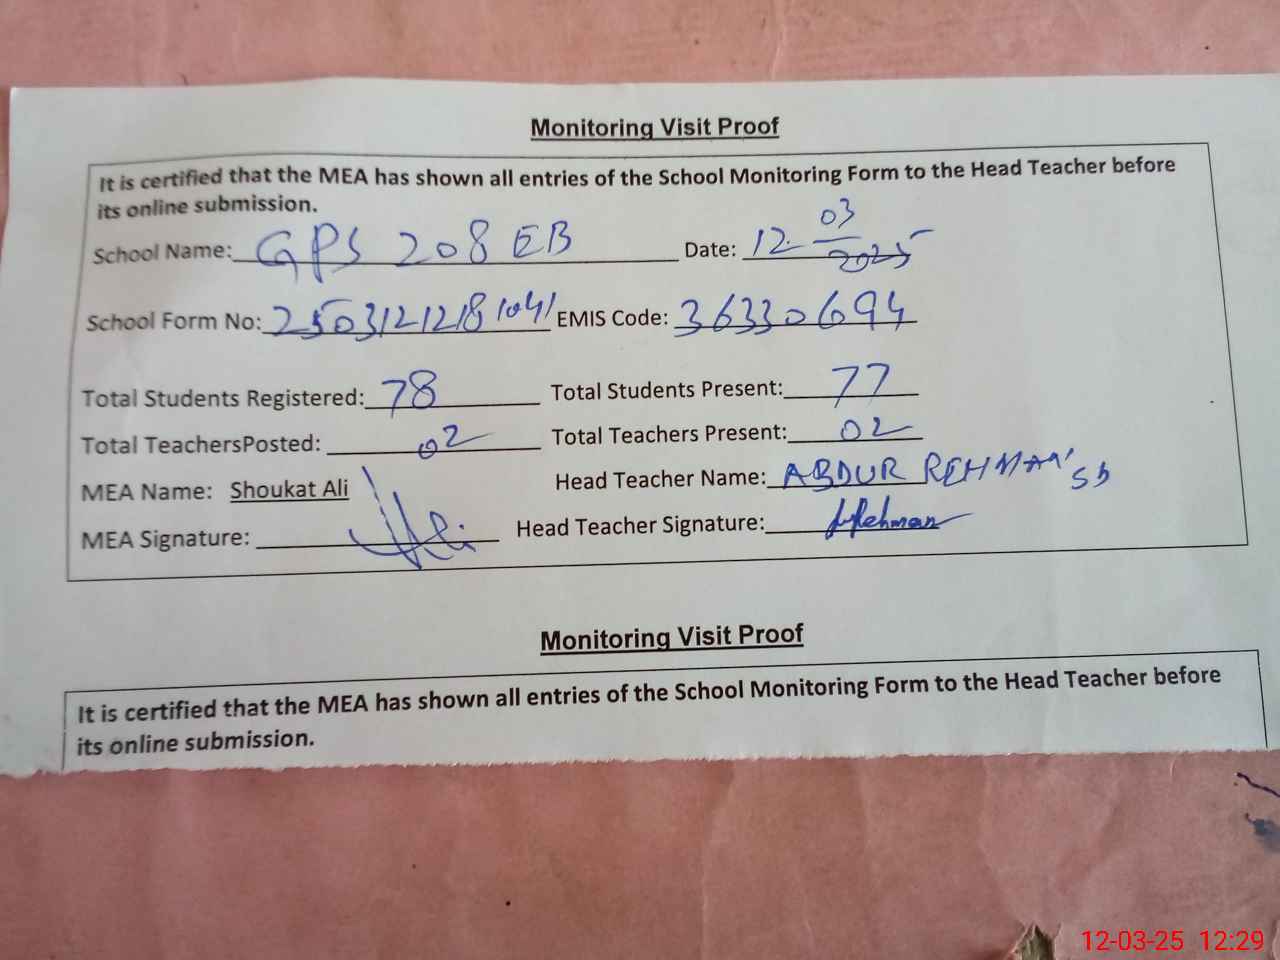 Monitoring Visit Proof
It is certified that the MEA has shown all entries of the School Monitoring Form to the Head Teacher before
its online submission.
School Name: GPS 208 EB Date: 12-03-2025
School Form No: 2503121218 1041 EMIS Code: 36330694
Total Students Registered: 78 Total Students Present: 77
Total TeachersPosted: 02 Total Teachers Present: 02
MEA Name: Shoukat Ali Head Teacher Name: ABDUR REHMAN Sb
MEA Signature: Ali Head Teacher Signature: Rehman
Monitoring Visit Proof
It is certified that the MEA has shown all entries of the School Monitoring Form to the Head Teacher before
its online submission.
12-03-25 12:29